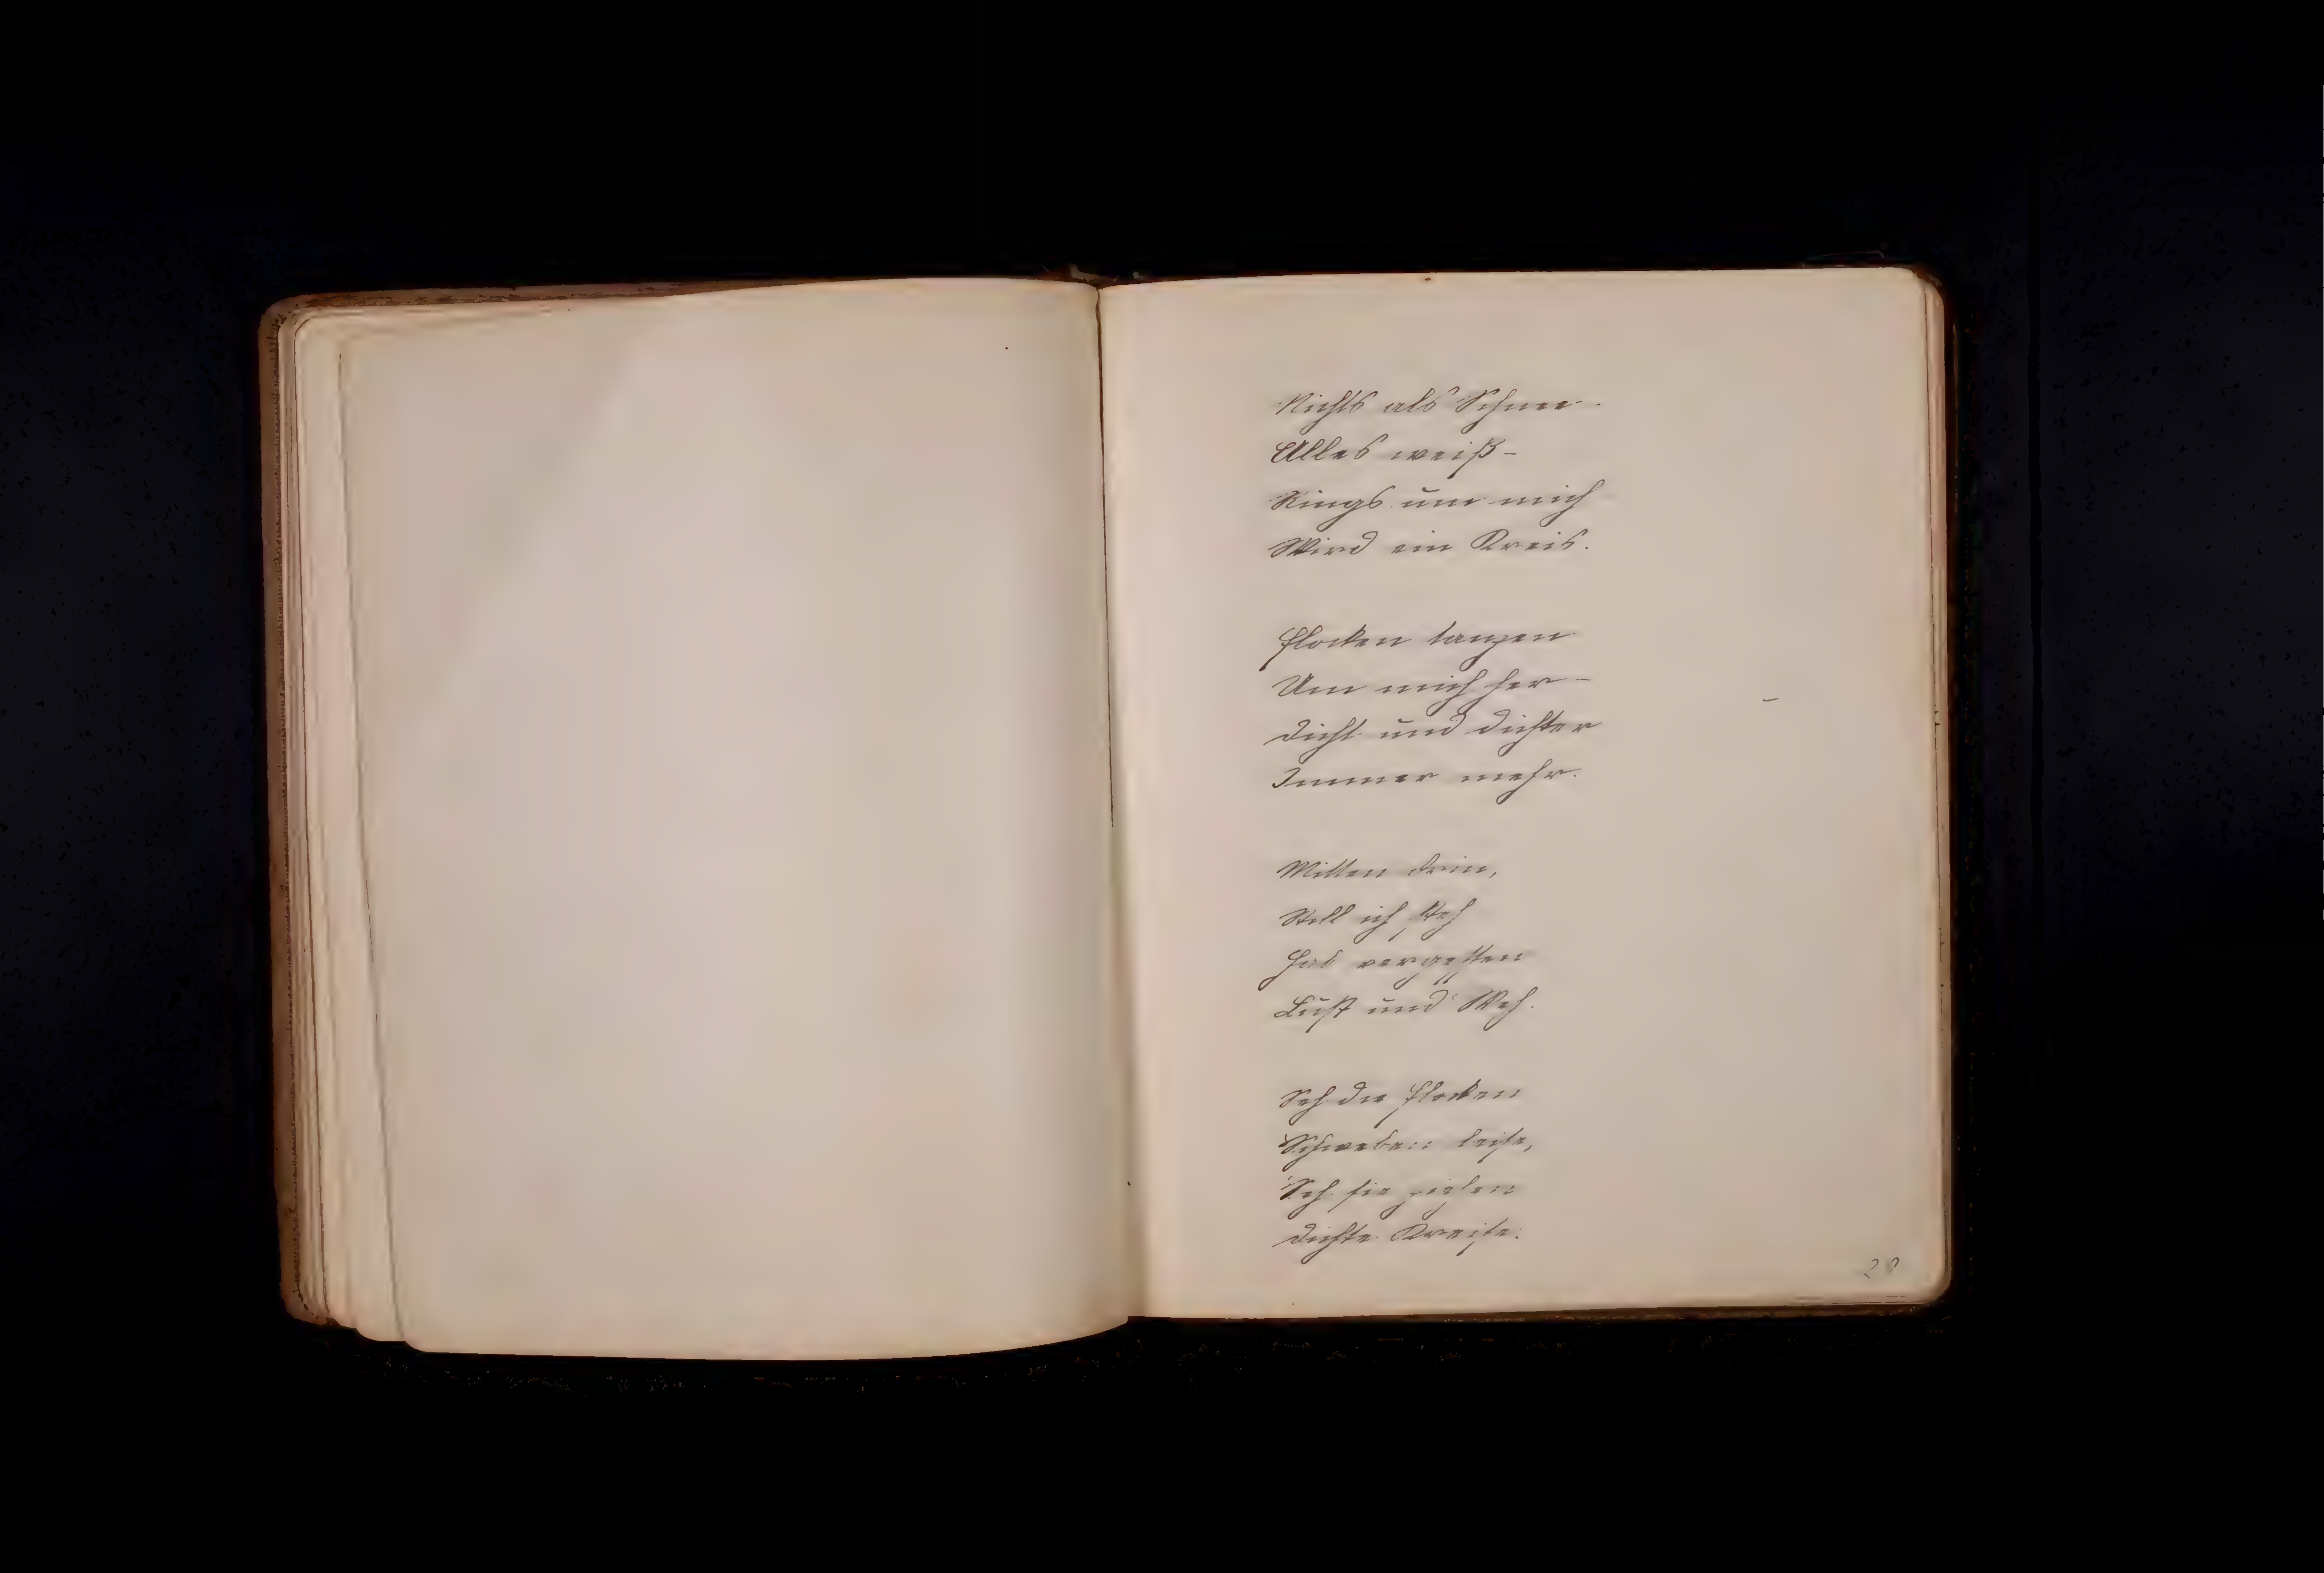 Nichts als Schnee.
Alles weiß –
Rings um mich
Wird ein Kreis.
Flocken tanzen
Um mich her –
Dicht und dichter
Immer mehr.
Mitten drin,
Still ich steh
Hab vergessen
Lust und Weh.
Seh die Flocken
Schweben leise,
Seh sie ziehen
Dichte Kreise.